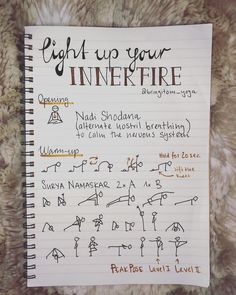 light up your
INNER FIRE
Opening
Nadi Shodana
(alternate nostril breathing)
to calm the nervous system
Warm-up
Hold for 20 sec
lift the
knees
SURYA NAMASKAR 2x A 1x B
PEAK POSE Level I Level II